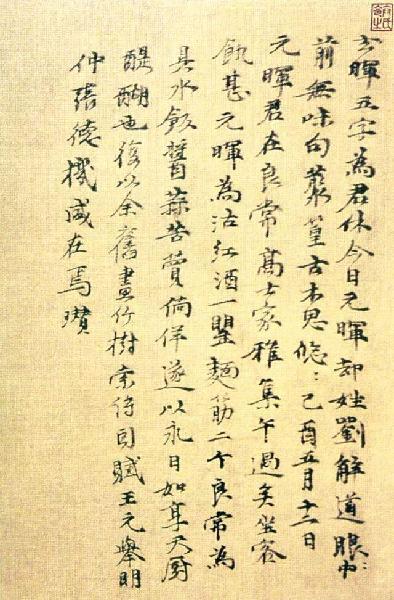 玄暉五字為君休今日元暉却姓劉解道眼中
前無味句叢篁古木思悠〻己酉五月十二日
元暉君在良常高士家雅集午過矣坐客
飢甚元暉為沽紅酒一罌麵筋二个良常為
具水飯醬蒜苦蕒徜徉遂以永日如享天厨
醍醐也復以余舊畫竹樹索賦王元舉明
仲張德機咸在焉瓚